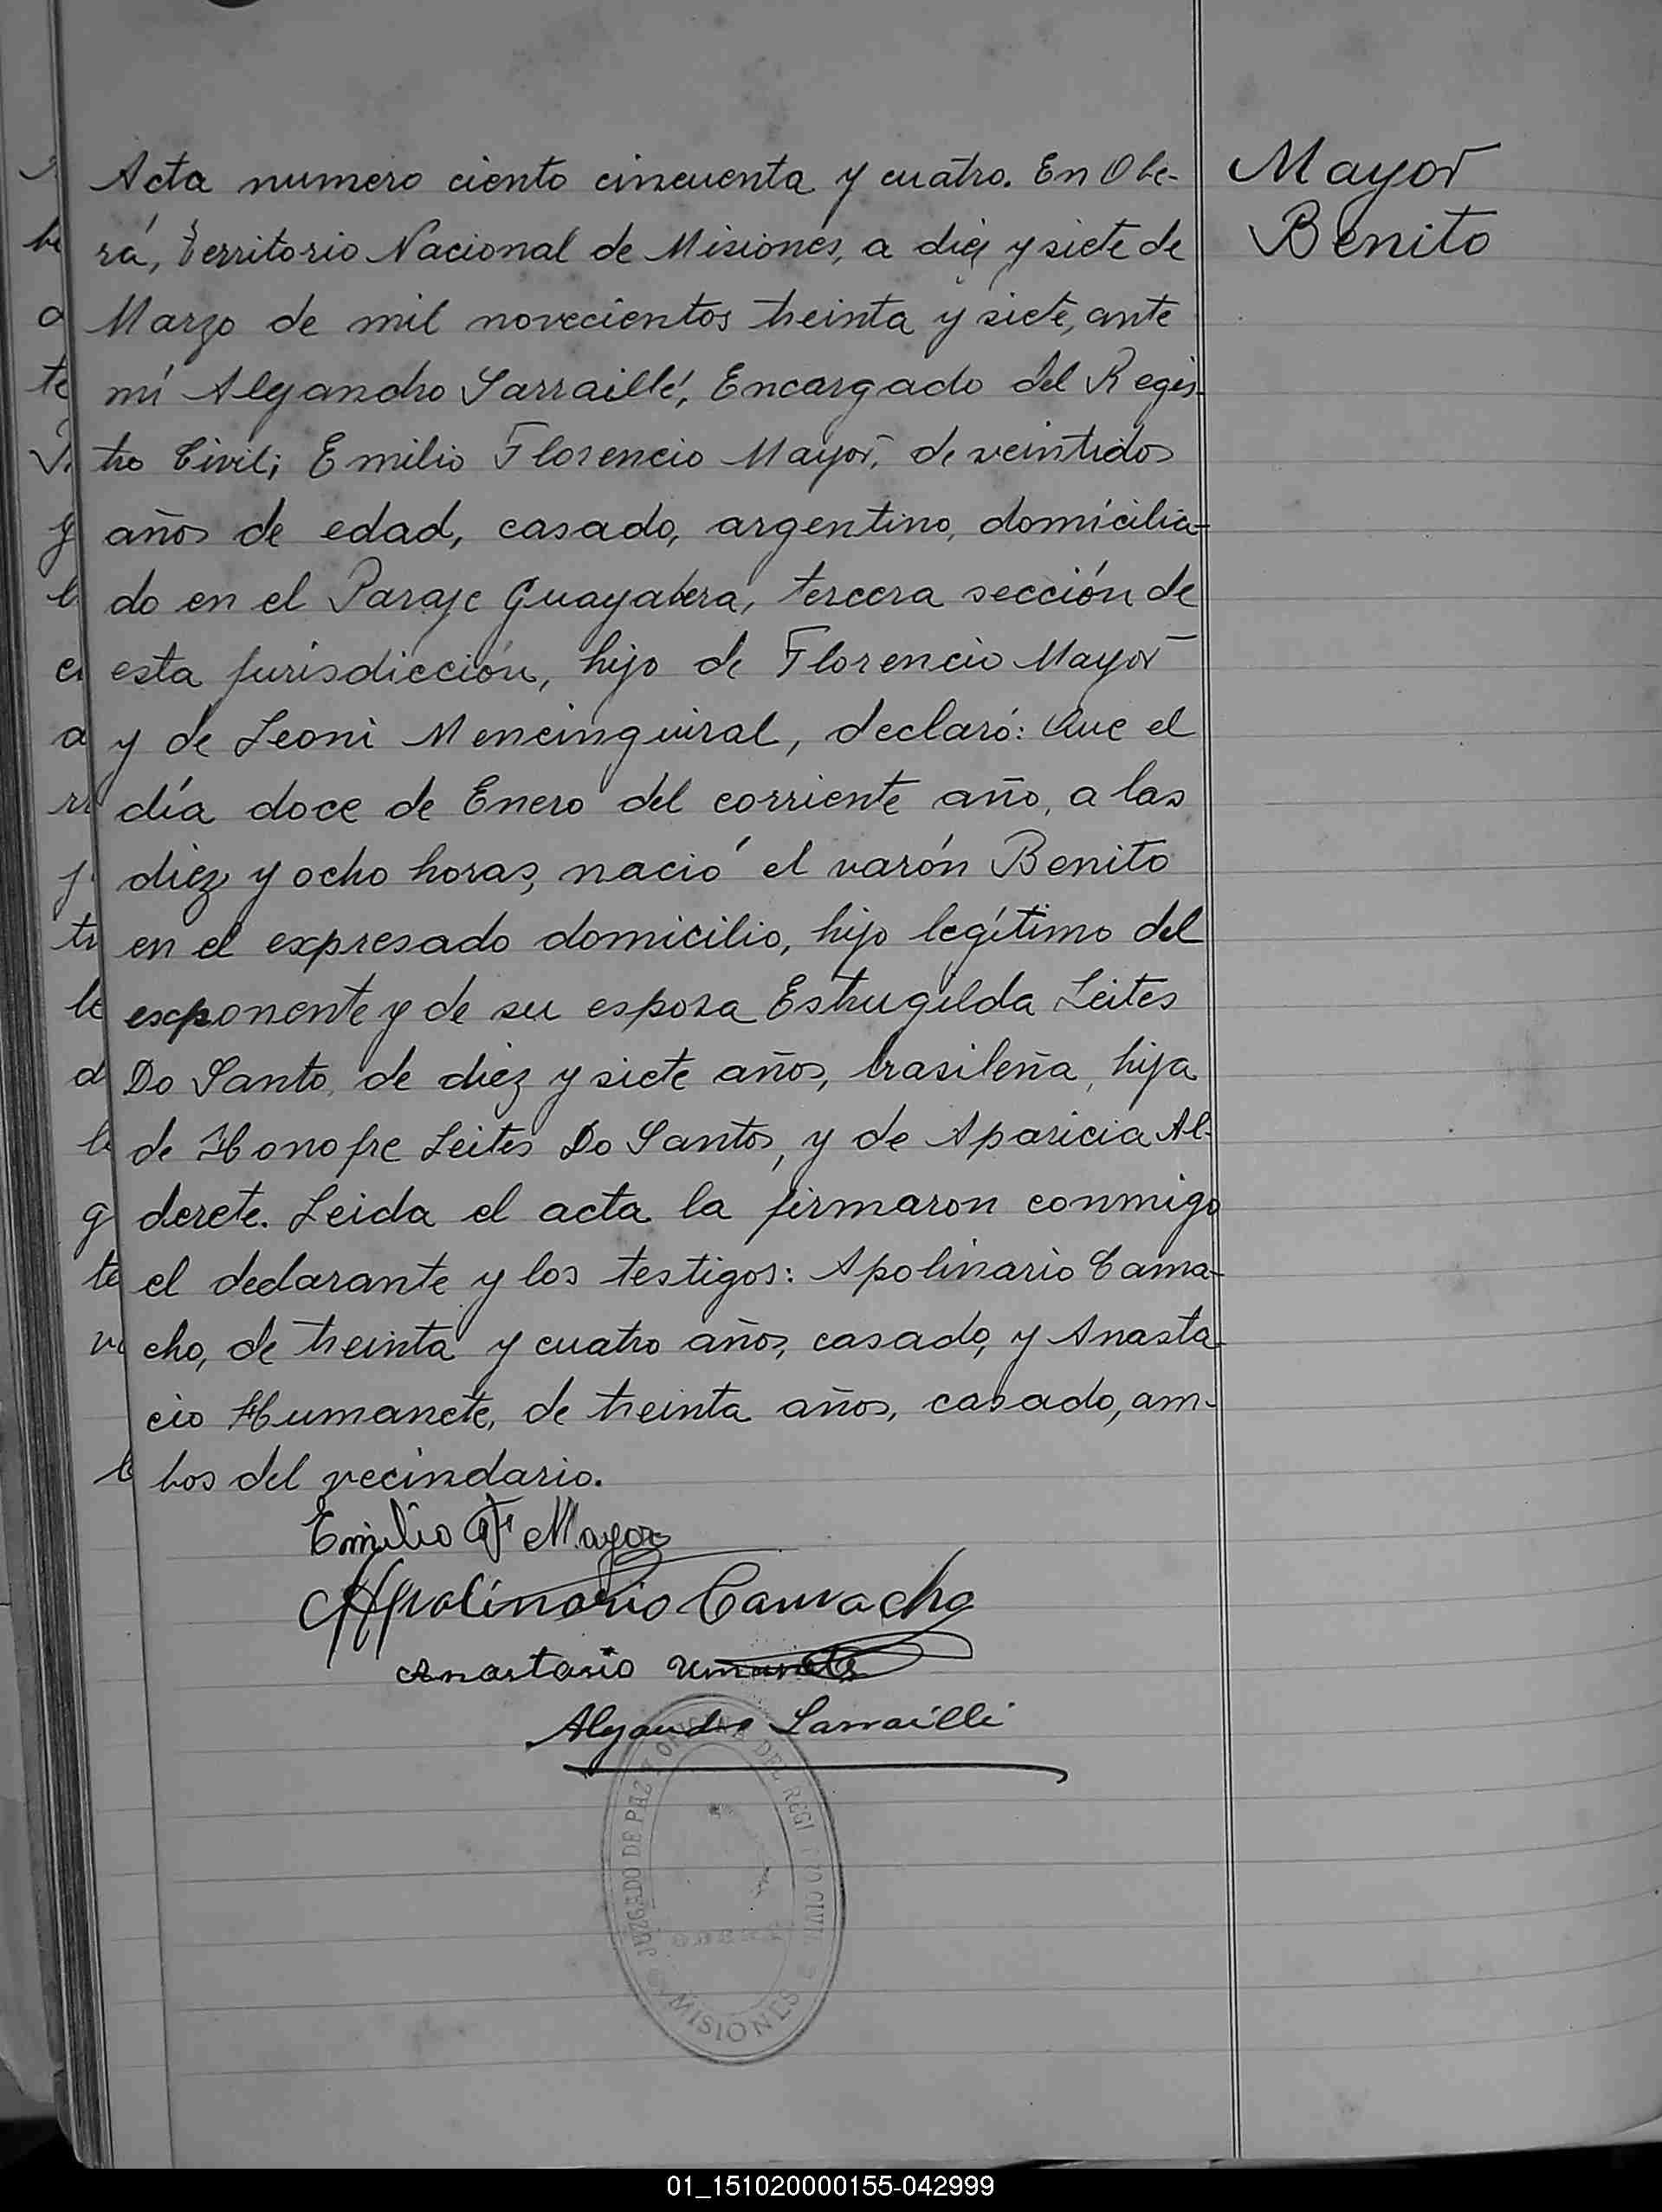 Mayor
Benito
Acta numero ciento cincuenta y cuatro. En Obe-
rá, Territorio Nacional de Misiones, a diez y siete de
Marzo de mil novecientos treinta y siete, ante
mí Alejandro Sarraillé, Encargado del Regis-
tro Civil; Emilio Florencio Mayor, de veintidos
años de edad, casado, argentino, domicilia-
do en el Paraje Guayabera, tercera sección de
esta jurisdicción, hijo de Florencio Mayor
y de Leoni Mencinguiral, declaró: Que el
día doce de Enero del corriente año, a las
diez y ocho horas, nació el varón Benito
en el expresado domicilio, hijo legítimo del
exponente y de su esposa Estrugilda Leites
Do Santo, de diez y siete años, brasileña, hija
de Honofre Leites Do Santos, y de Aparicia Al-
derete. Leida el acta la firmaron conmigo
el declarante y los testigos: Apolinario Cama-
cho, de treinta y cuatro años, casado, y Anasta-
cio Humanete, de treinta años, casado, am-
bos del vecindario.
Emilio F Mayor
Apolinario Camacho
Anastasio Umanete
Alejandro Sarraillé
JUZGADO DE PAZ Y OFICINA DEL REGI TRO CIVIL
OBERA
MISIONES
01_151020000155-042999